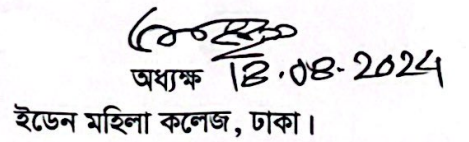 অধ্যক্ষ 18.08-2024
ইডেন মহিলা কলেজ, ঢাকা।